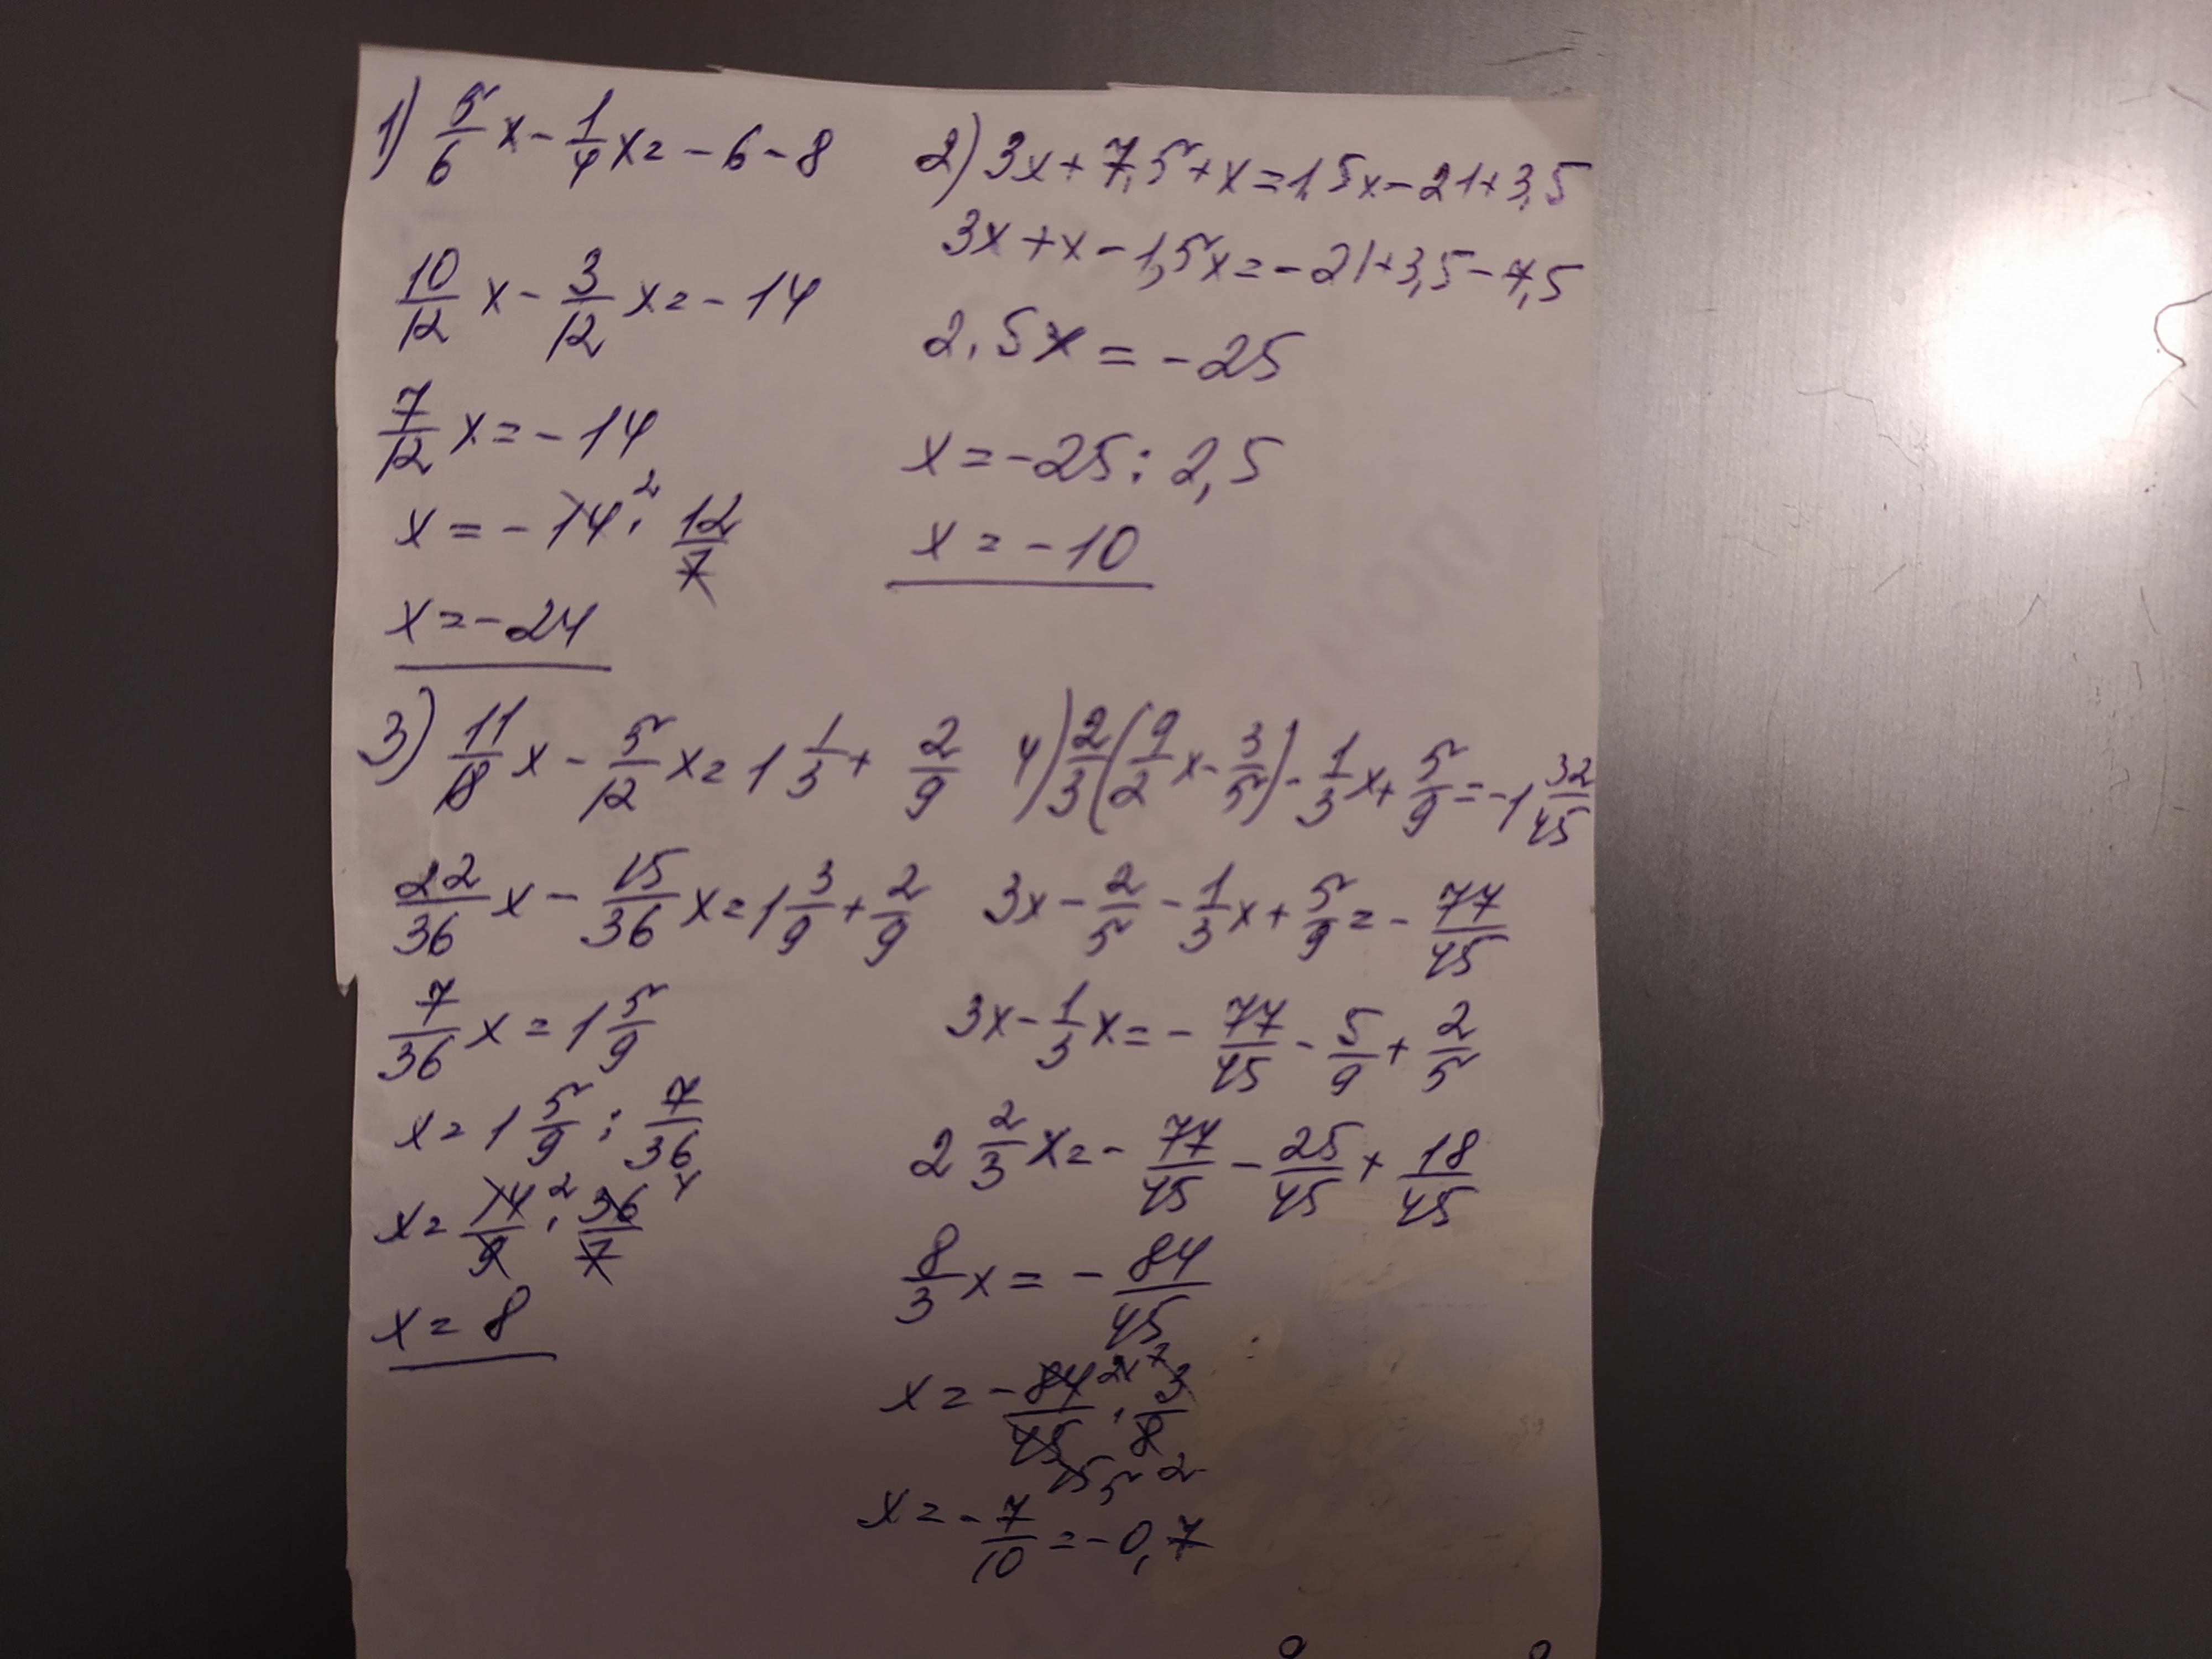 1) 5/6 x - 1/4 x = - 6 - 8
10/12 x - 3/12 x = - 14
7/12 x = - 14
x = - 14² · 12/7
x = - 24
2) 3x + 7,5 + x = 1,5x - 21 + 3,5
3x + x - 1,5x = - 21 + 3,5 - 7,5
2,5x = - 25
x = - 25 : 2,5
x = - 10
3) 11/18 x - 5/12 x = 1 1/3 + 2/9
22/36 x - 15/36 x = 1 3/9 + 2/9
7/36 x = 1 5/9
x = 1 5/9 : 7/36
x = 14/9 ² · 36/7 ⁴
x = 8
4) 2/3 (9/2 x - 3/5) - 1/3 x + 5/9 = - 1 32/45
3x - 2/5 - 1/3 x + 5/9 = - 77/45
3x - 1/3 x = - 77/45 - 5/9 + 2/5
2 2/3 x = - 77/45 - 25/45 + 18/45
8/3 x = - 84/45
x = - 84/45 21 7 · 3/8
15 5 2
x = - 7/10 = - 0,7